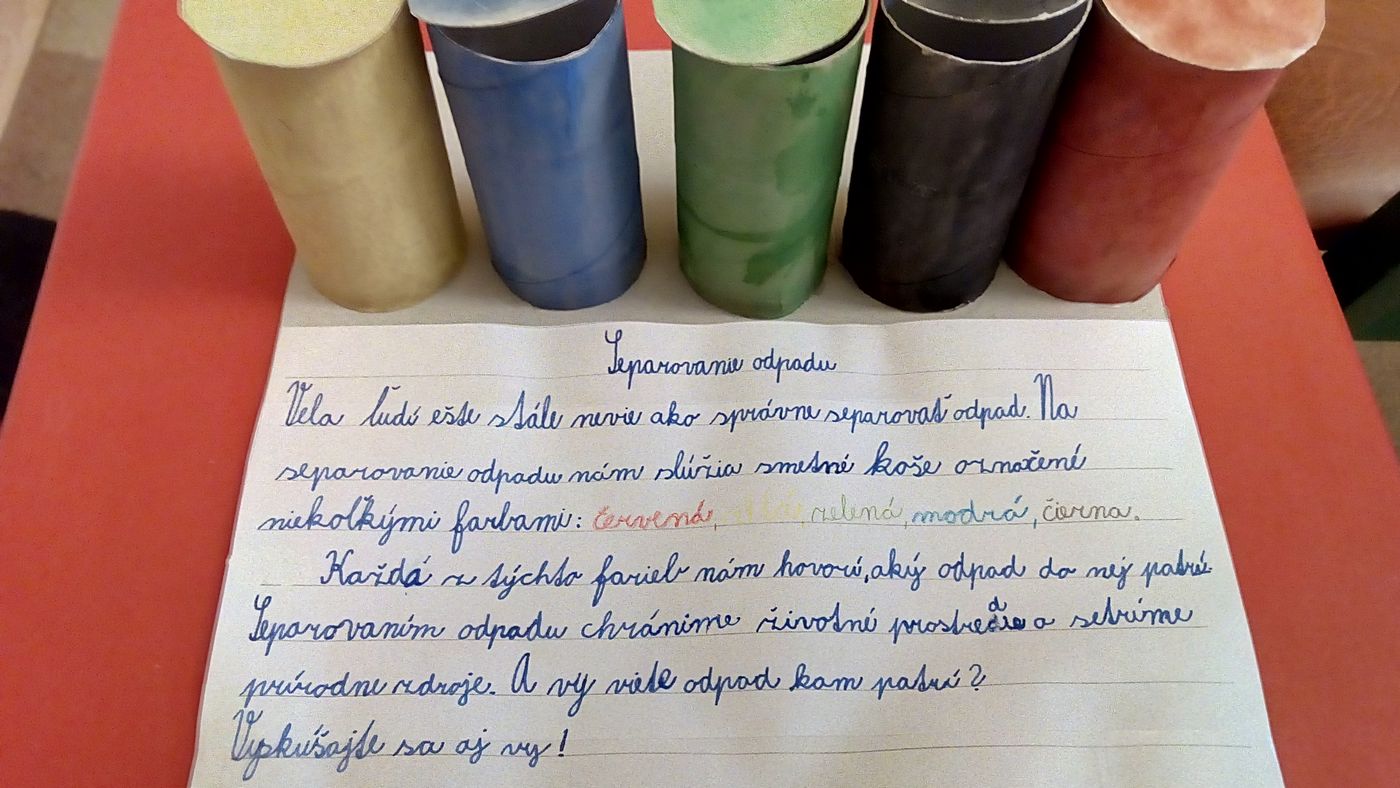 Separovanie odpadu
Veľa ľudí ešte stále nevie ako správne separovať odpad. Na
separovanie odpadu nám slúžia smetné koše označené
niekoľkými farbami: červená, žltá, zelená, modrá, čierna.
Každá z týchto farieb nám hovorí, aký odpad do nej patrí.
Separovaním odpadu chránime životné prostredie a setríme
prírodne zdroje. A vy viete odpad kam patrí?
Vyskúšajte sa aj vy!